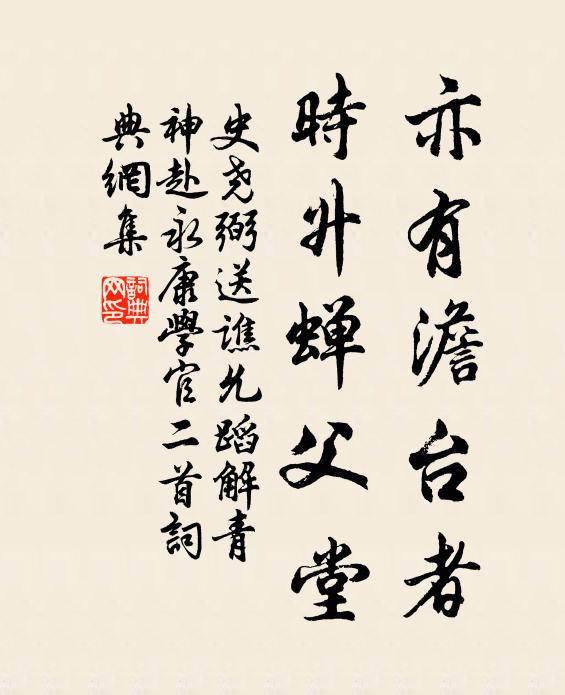 亦有澹台者
時升蝉父堂
史尧弼送譙允蹈解青
神赴永康學官二首詞
典網集
詞典网印